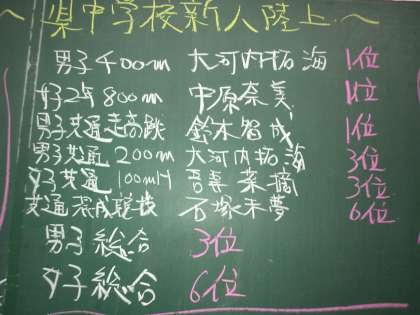 ～県中学校新人陸上～
男子400m 大河内拓海 1位
女子2年800m 中原奈美 1位
男子共通走高跳 鈴木智成 1位
男子共通200m 大河内拓海 3位
女子共通100mH 菜摘 3位
共通 石塚未夢 6位
男子総合 3位
女子総合 6位